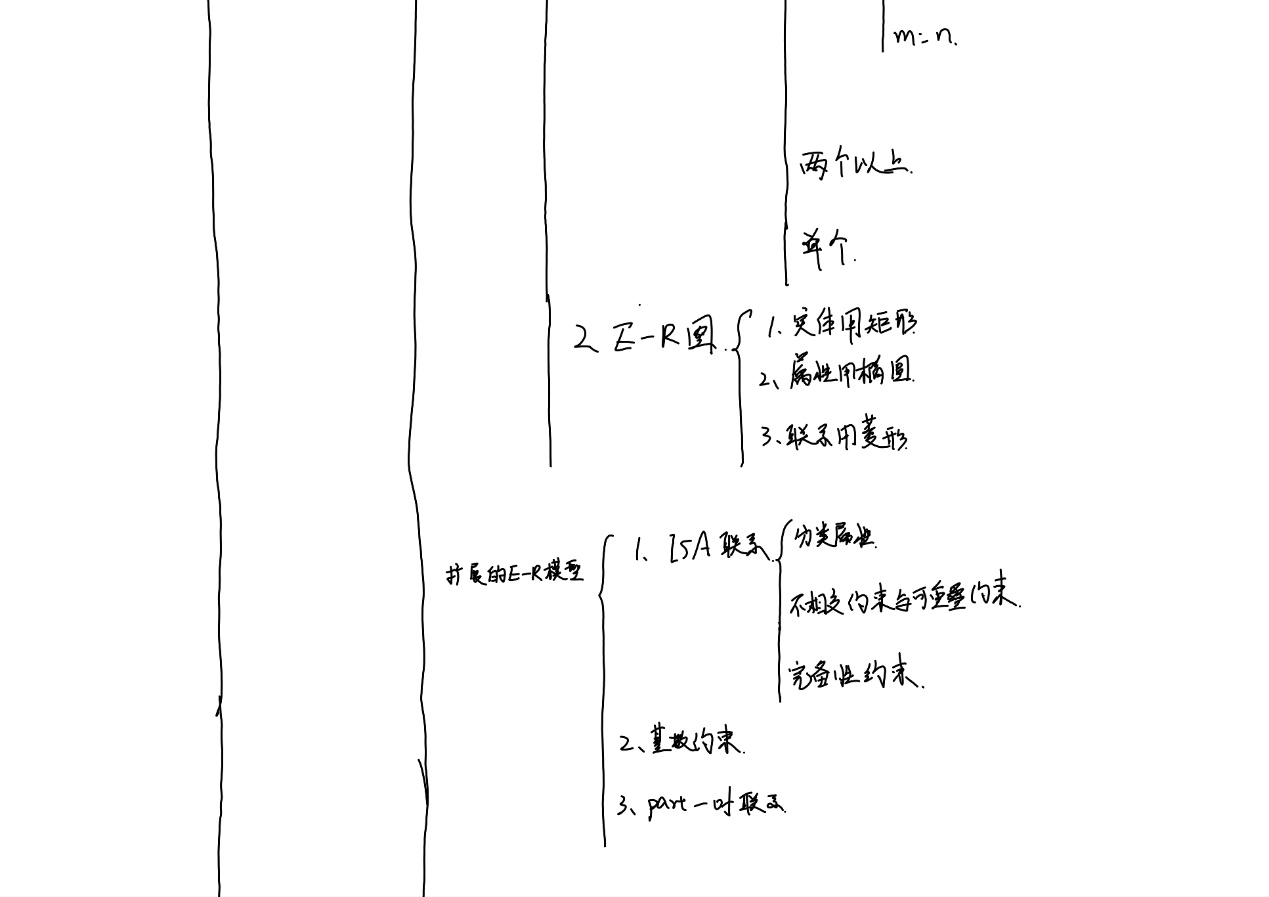 m:n.
两个以上.
单个.
2、E-R图.
1、实体用矩形
2、属性用椭圆.
3、联系用菱形
扩展的E-R模型
1、ISA联系.
分类属性.
不相交约束与可重叠约束.
完备性约束.
2、基数约束.
3、part-of联系.